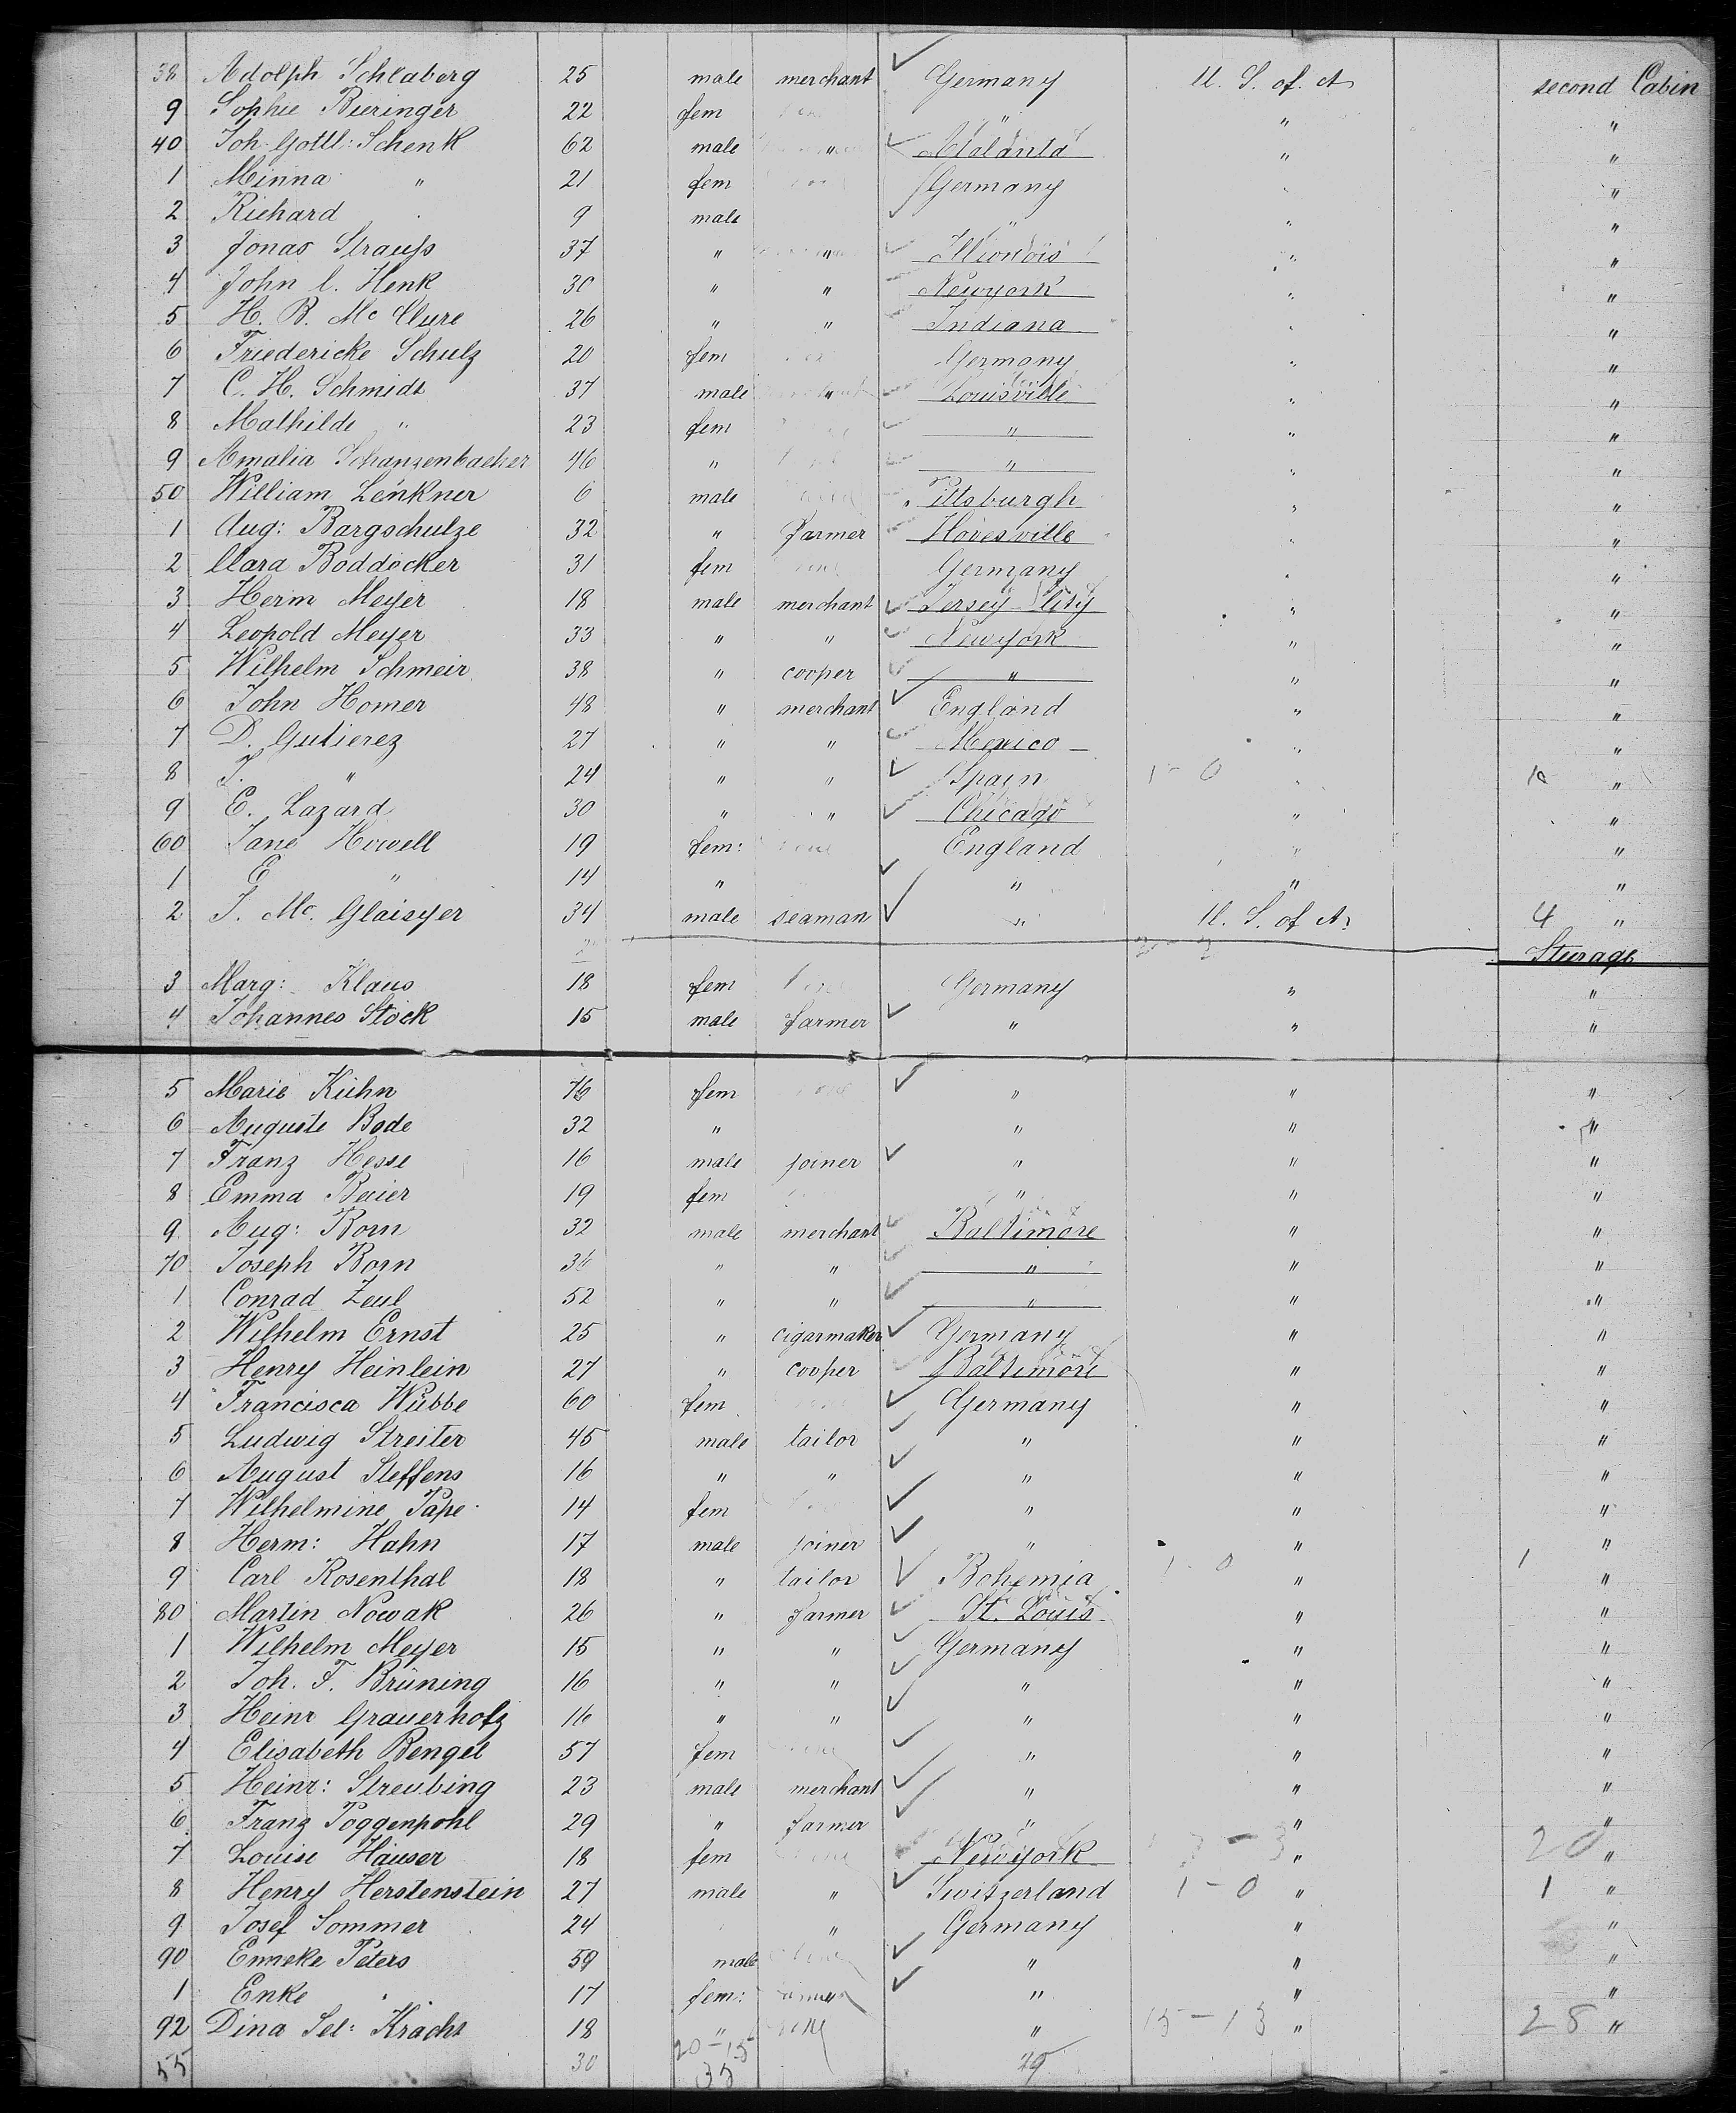 38 Adolph Schlaberg 25 male merchant Germany U. S. of. A second Cabin
9 Sophie Bieringer 22 fem " " "
40 Joh. Gottl: Schenk 62 male " Atlanta " "
1 Minna " 21 fem Germany " "
2 Richard 9 male " " "
3 Jonas Strauss 37 " " Illionois " "
4 John C. Henk 30 " " Newyork " "
5 H. B. Mc Clure 26 " " Indiana " "
6 Friedericke Schulz 20 fem Germany " "
7 C. H. Schmidt 37 male " Louisville " "
8 Mathilde " 23 fem " " "
9 Amalia Schanzenbacher 46 " " " "
50 William Lenkner 6 male Pittsburgh " "
1 Aug: Bargschulze 32 " farmer Hovesville " "
2 Clara Boddocker 31 fem Germany " "
3 Herm Meyer 18 male merchant Jersey City " "
4 Leopold Meyer 33 " " Newyork " "
5 Wilhelm Schmeir 38 " cooper " " "
6 John Homer 48 " merchant England " "
7 D. Gutierez 27 " " Mexico " "
8 J. " 24 " " Spain 1 - 0 " "
9 E. Lazard 30 " " Chicago " "
60 Jane Howell 19 fem: England " "
1 E " 14 " " " "
2 J. Mc. Glaisyer 34 male seaman " U. S. of A. 4 "
Sturage
3 Marg: Klaus 18 fem Germany " "
4 Johannes Stock 15 male farmer " " "
5 Marie Kühn 76 fem none " " "
6 Auguste Bode 32 " " " "
7 Franz Hesse 16 male joiner " " "
8 Emma Baier 19 fem " " "
9 Aug: Born 32 male merchant Baltimore " "
70 Joseph Born 36 " " " " "
1 Conrad Zeul 52 " " " " "
2 Wilhelm Ernst 25 " cigarmaker Germany " "
3 Henry Heinlein 27 " cooper Baltimore " "
4 Francisca Wübbe 60 fem Germany " "
5 Ludwig Streiter 45 male tailor " " "
6 August Steffens 16 " " " " "
7 Wilhelmine Pape 14 fem " " "
8 Herm: Hahn 17 male joiner " " "
9 Carl Rosenthal 18 " tailor Bohemia 1 - 0 " 1 "
80 Martin Nowak 26 " farmer St. Louis " "
1 Wilhelm Meyer 15 " " Germany " "
2 Joh. F. Brüning 16 " " " " "
3 Heinr Grauerholz 16 " " " " "
4 Elisabeth Bengel 57 fem " " "
5 Heinr: Streubing 23 male merchant " " "
6 Franz Poggenpohl 29 " farmer " " "
7 Louise Häuser 18 fem Newyork - 3 " 20 "
8 Henry Herstenstein 27 male " Switzerland 1 - 0 " 1 "
9 Josef Sommer 24 " Germany " "
90 Enneke Peters 59 male " " "
1 Enke " 17 fem: " " "
92 Dina Sel: Kracht 18 " " 15 - 13 " 28 "
55 30 20 - 15 29
35